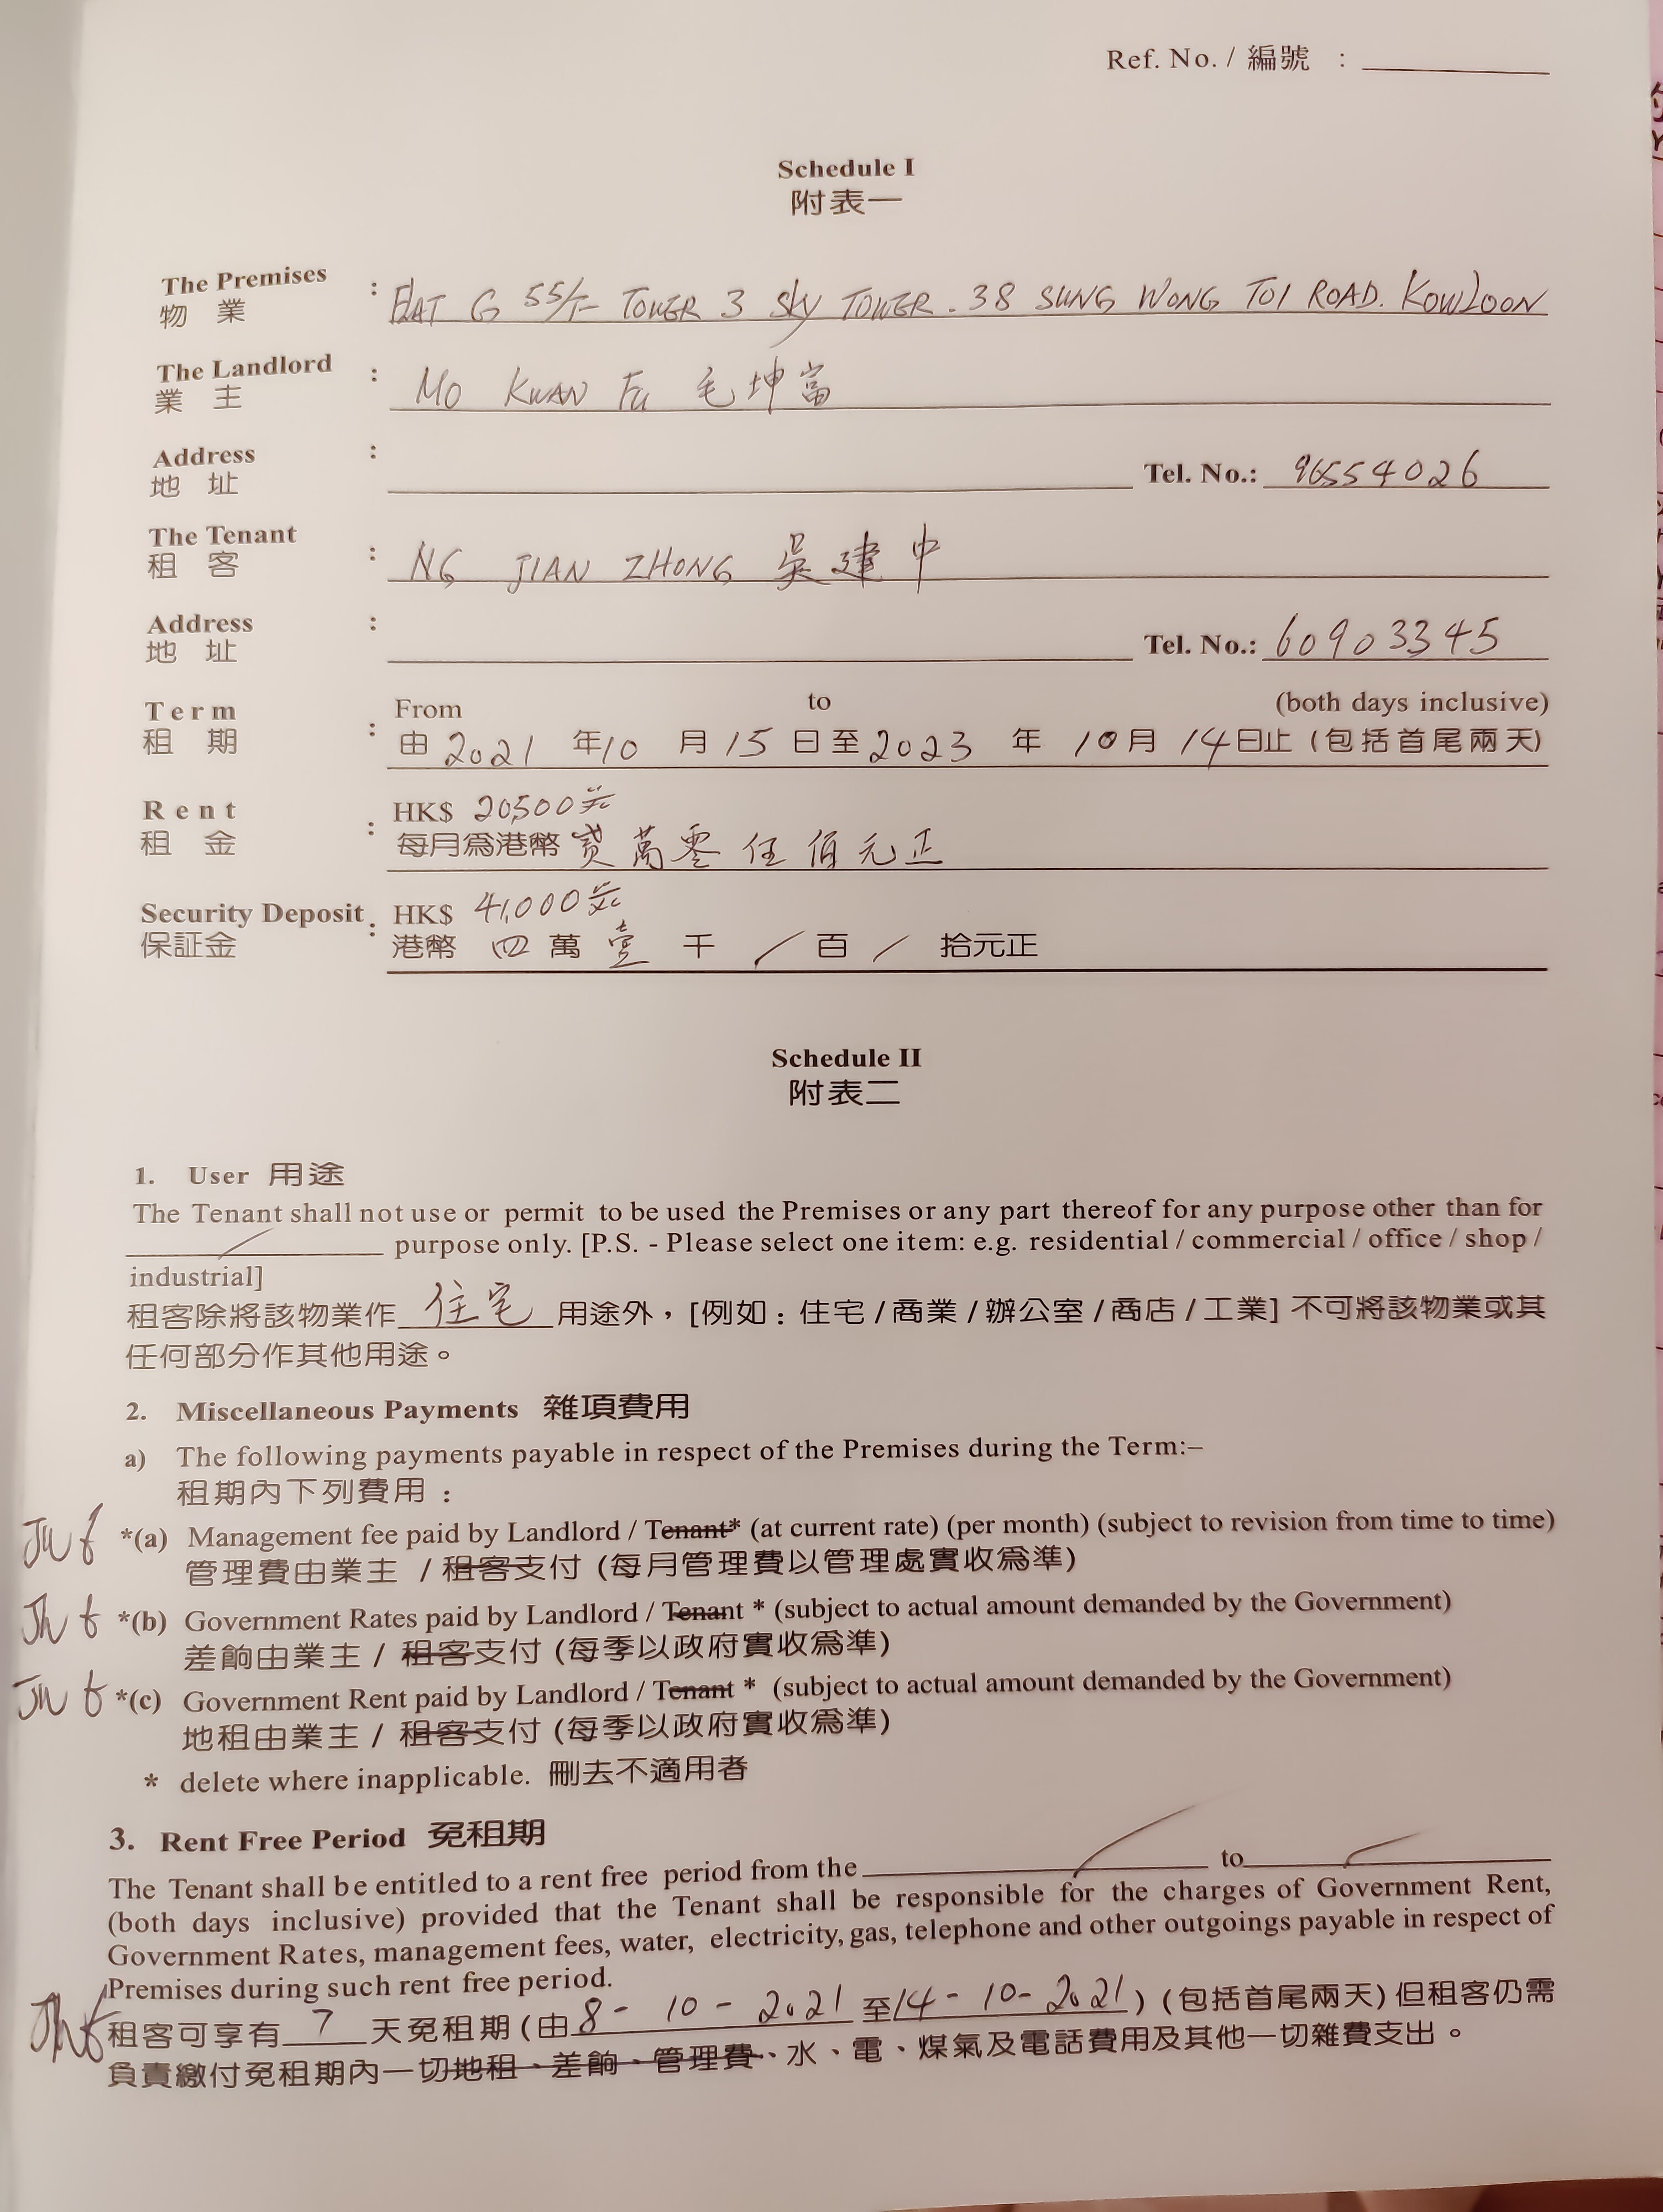 Ref. No. / 編號 :
Schedule I
附表一
The Premises : FLAT G 55/F TOWER 3 Sky TOWER. 38 SUNG WONG TOI ROAD. KOWLOON
物 業
The Landlord : MO KWAN FU 毛坤富
業 主
Address : Tel. No.: 96554026
地 址
The Tenant : NG JIAN ZHONG 吳建中
租 客
Address : Tel. No.: 60903345
地 址
Term : From to (both days inclusive)
租 期 由 2021 年 10 月 15 日至 2023 年 10 月 14 日止 (包括首尾兩天)
Rent : HK$ 20,500元
租 金 每月為港幣 貳萬零伍佰元正
Security Deposit : HK$ 41,000元
保証金 港幣 四 萬 壹 千 / 百 / 拾元正
Schedule II
附表二
1. User 用途
The Tenant shall not use or permit to be used the Premises or any part thereof for any purpose other than for
/ purpose only. [P.S. - Please select one item: e.g. residential / commercial / office / shop /
industrial]
租客除將該物業作 住宅 用途外，[例如：住宅 / 商業 / 辦公室 / 商店 / 工業] 不可將該物業或其
任何部分作其他用途。
2. Miscellaneous Payments 雜項費用
a) The following payments payable in respect of the Premises during the Term:–
租期內下列費用：
*(a) Management fee paid by Landlord / Tenant* (at current rate) (per month) (subject to revision from time to time)
管理費由業主 / 租客支付 (每月管理費以管理處實收為準)
*(b) Government Rates paid by Landlord / Tenant * (subject to actual amount demanded by the Government)
差餉由業主 / 租客支付 (每季以政府實收為準)
*(c) Government Rent paid by Landlord / Tenant * (subject to actual amount demanded by the Government)
地租由業主 / 租客支付 (每季以政府實收為準)
* delete where inapplicable. 刪去不適用者
3. Rent Free Period 免租期
The Tenant shall be entitled to a rent free period from the / to /
(both days inclusive) provided that the Tenant shall be responsible for the charges of Government Rent,
Government Rates, management fees, water, electricity, gas, telephone and other outgoings payable in respect of
Premises during such rent free period.
租客可享有 7 天免租期 (由 8 - 10 - 2021 至 14 - 10 - 2021) (包括首尾兩天) 但租客仍需
負責繳付免租期內一切地租、差餉、管理費、水、電、煤氣及電話費用及其他一切雜費支出。